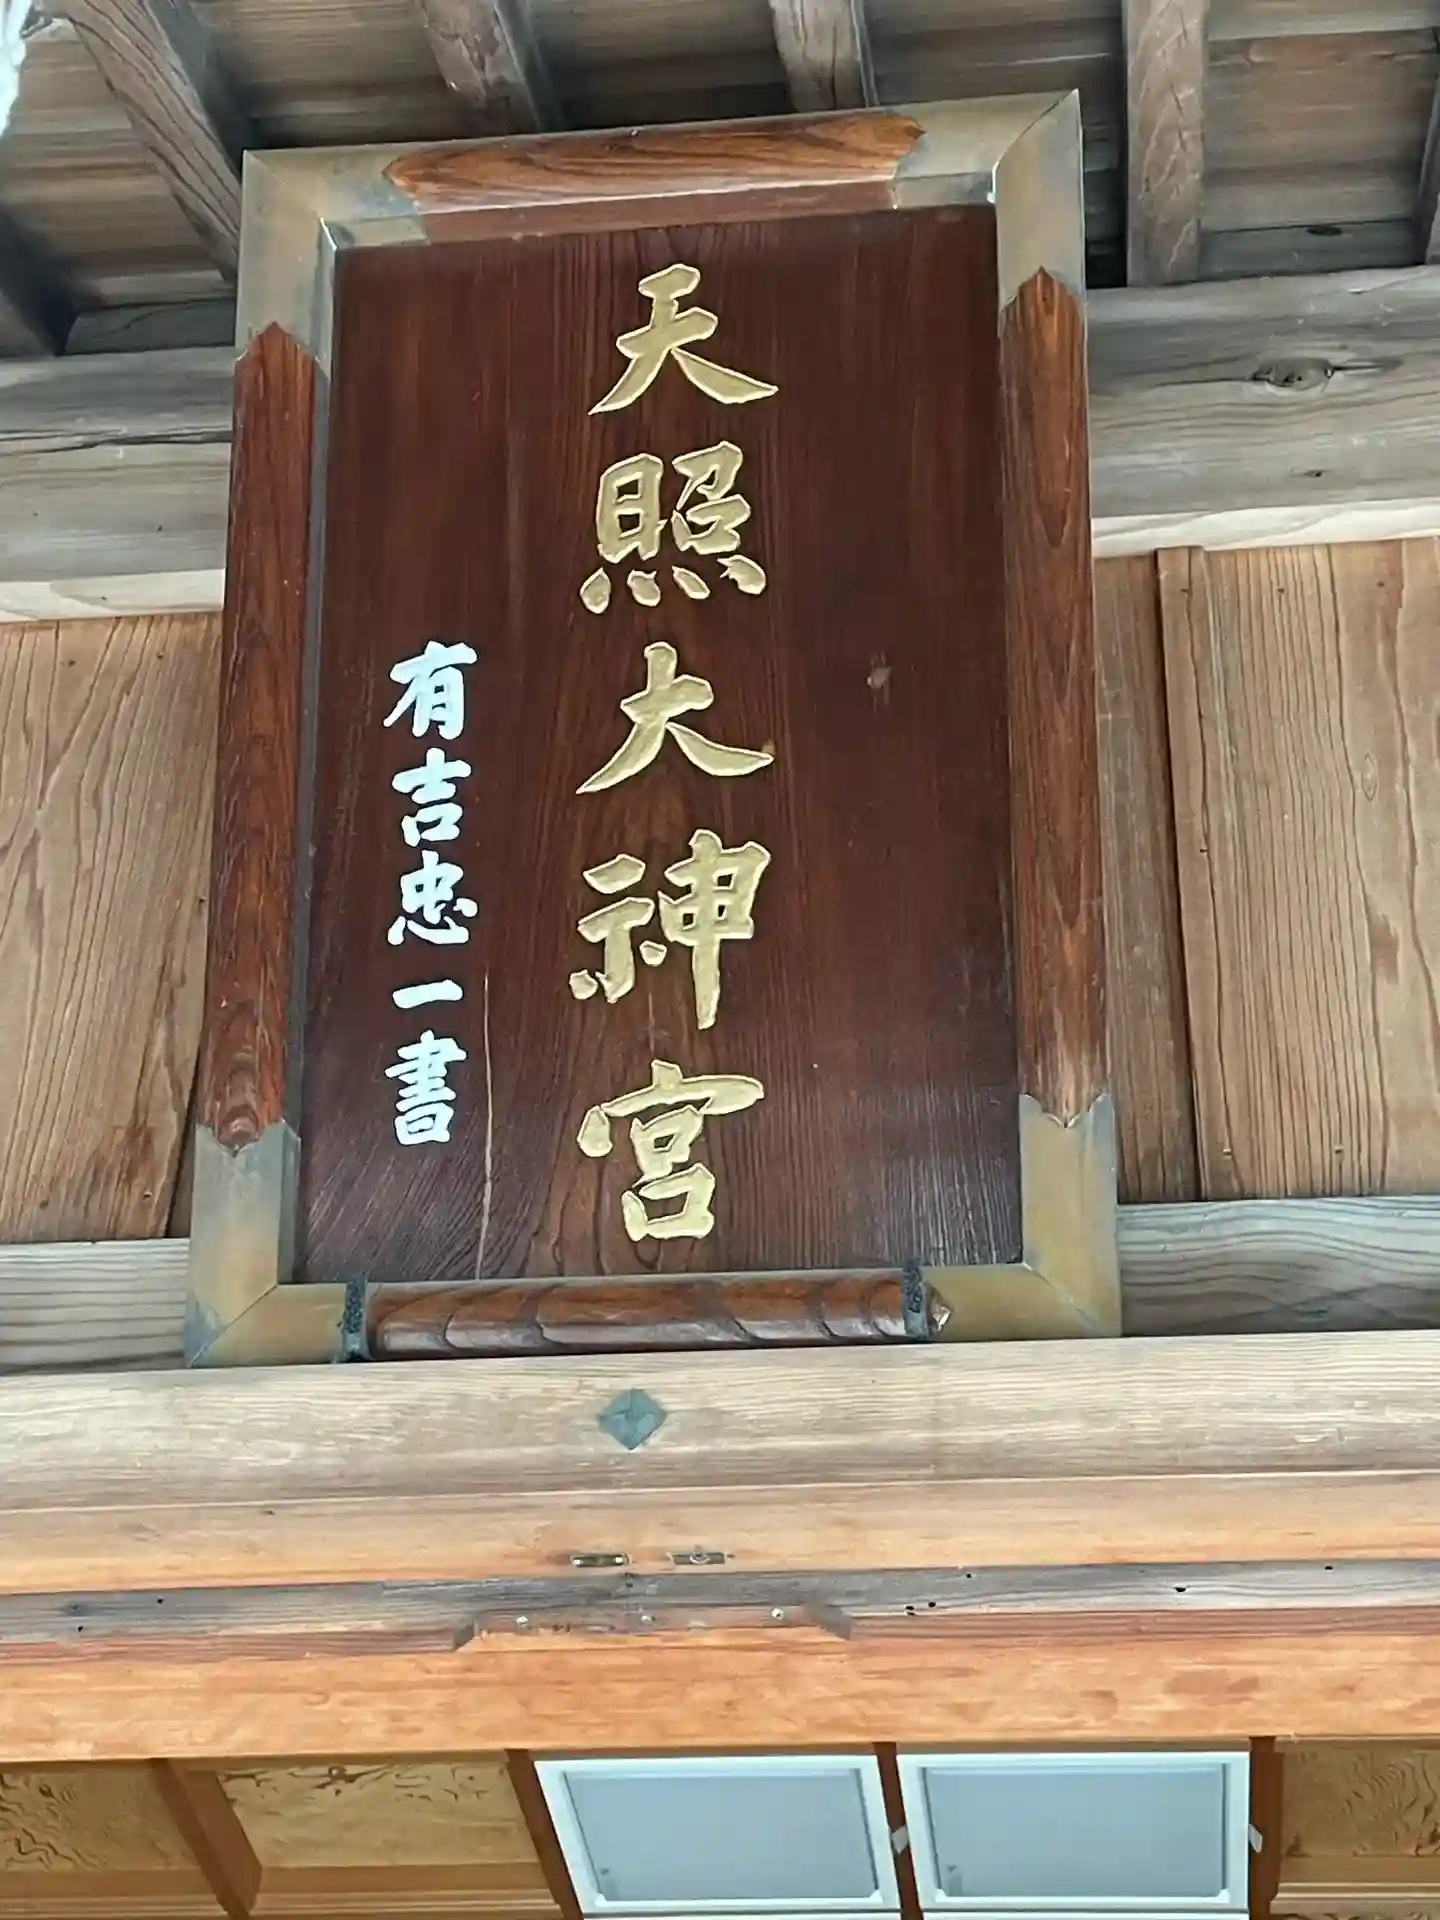 天照大神宮
有吉忠一書